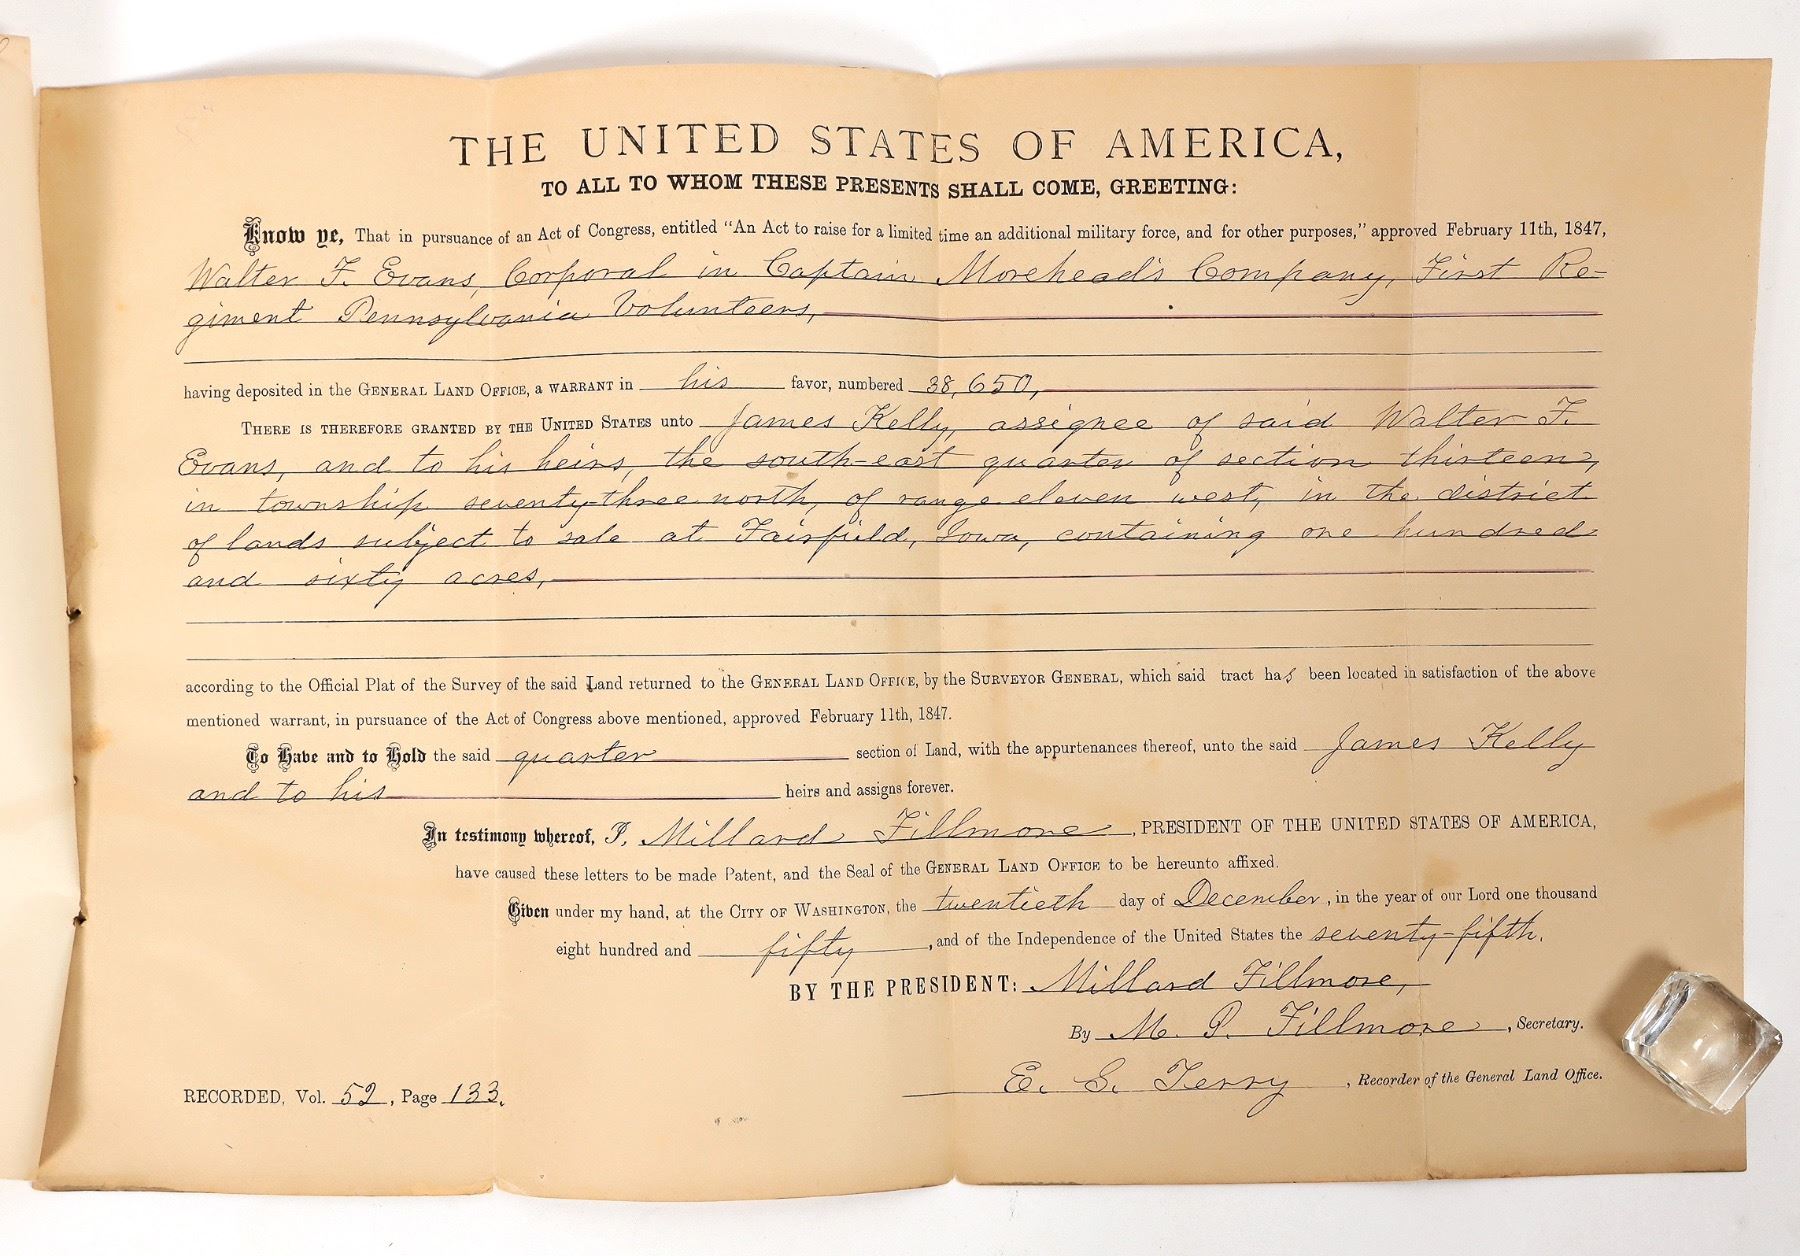 THE UNITED STATES OF AMERICA,
TO ALL TO WHOM THESE PRESENTS SHALL COME, GREETING:
Know ye, That in pursuance of an Act of Congress, entitled "An Act to raise for a limited time an additional military force, and for other purposes," approved February 11th, 1847,
Walter F. Evans, Corporal in Captain Morehead's Company, First Re-
giment Pennsylvania Volunteers,
having deposited in the GENERAL LAND OFFICE, A WARRANT in his favor, numbered 38,650,
THERE IS THEREFORE GRANTED BY THE UNITED STATES unto James Kelly, assignee of said Walter F.
Evans, and to his heirs, the south-east quarter of section thirteen,
in township seventy-three north, of range eleven west, in the district
of lands subject to sale at Fairfield, Iowa, containing one hundred
and sixty acres,
according to the Official Plat of the Survey of the said Land returned to the GENERAL LAND OFFICE, by the SURVEYOR GENERAL, which said tract has been located in satisfaction of the above
mentioned warrant, in pursuance of the Act of Congress above mentioned, approved February 11th, 1847.
To Have and to Hold the said quarter section of Land, with the appurtenances thereof, unto the said James Kelly
and to his heirs and assigns forever.
In testimony whereof, I, Millard Fillmore, PRESIDENT OF THE UNITED STATES OF AMERICA,
have caused these letters to be made Patent, and the Seal of the GENERAL LAND OFFICE to be hereunto affixed.
Given under my hand, at the CITY OF WASHINGTON, the twentieth day of December, in the year of our Lord one thousand
eight hundred and fifty, and of the Independence of the United States the seventy-fifth.
BY THE PRESIDENT: Millard Fillmore,
By M. P. Fillmore, Secretary.
E. S. Terry, Recorder of the General Land Office.
RECORDED, Vol. 52, Page 133.